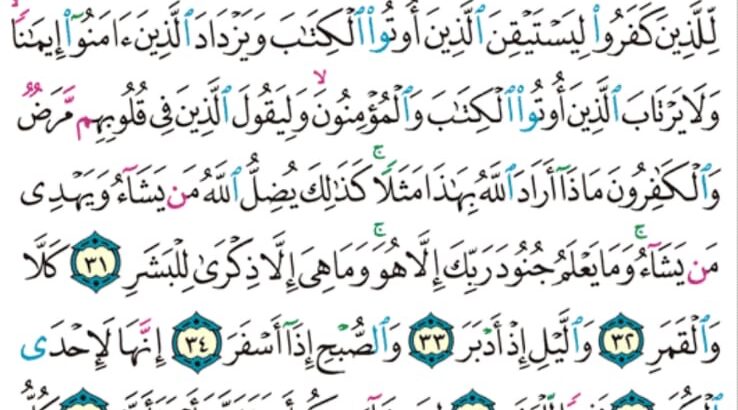 لِّلَّذِينَ كَفَرُوا۟ لِيَسْتَيْقِنَ ٱلَّذِينَ أُوتُوا۟ ٱلْكِتَٰبَ وَيَزْدَادَ ٱلَّذِينَ ءَامَنُوٓا۟ إِيمَٰنًۭا ۙ
وَلَا يَرْتَابَ ٱلَّذِينَ أُوتُوا۟ ٱلْكِتَٰبَ وَٱلْمُؤْمِنُونَ ۙ وَلِيَقُولَ ٱلَّذِينَ فِى قُلُوبِهِم مَّرَضٌۭ
وَٱلْكَٰفِرُونَ مَاذَآ أَرَادَ ٱللَّهُ بِهَٰذَا مَثَلًۭا ۚ كَذَٰلِكَ يُضِلُّ ٱللَّهُ مَن يَشَآءُ وَيَهْدِى
مَن يَشَآءُ ۚ وَمَا يَعْلَمُ جُنُودَ رَبِّكَ إِلَّا هُوَ ۚ وَمَا هِىَ إِلَّا ذِكْرَىٰ لِلْبَشَرِ ٣١ كَلَّا
وَٱلْقَمَرِ ٣٢ وَٱلَّيْلِ إِذْ أَدْبَرَ ٣٣ وَٱلصُّبْحِ إِذَآ أَسْفَرَ ٣٤ إِنَّهَا لَإِحْدَى